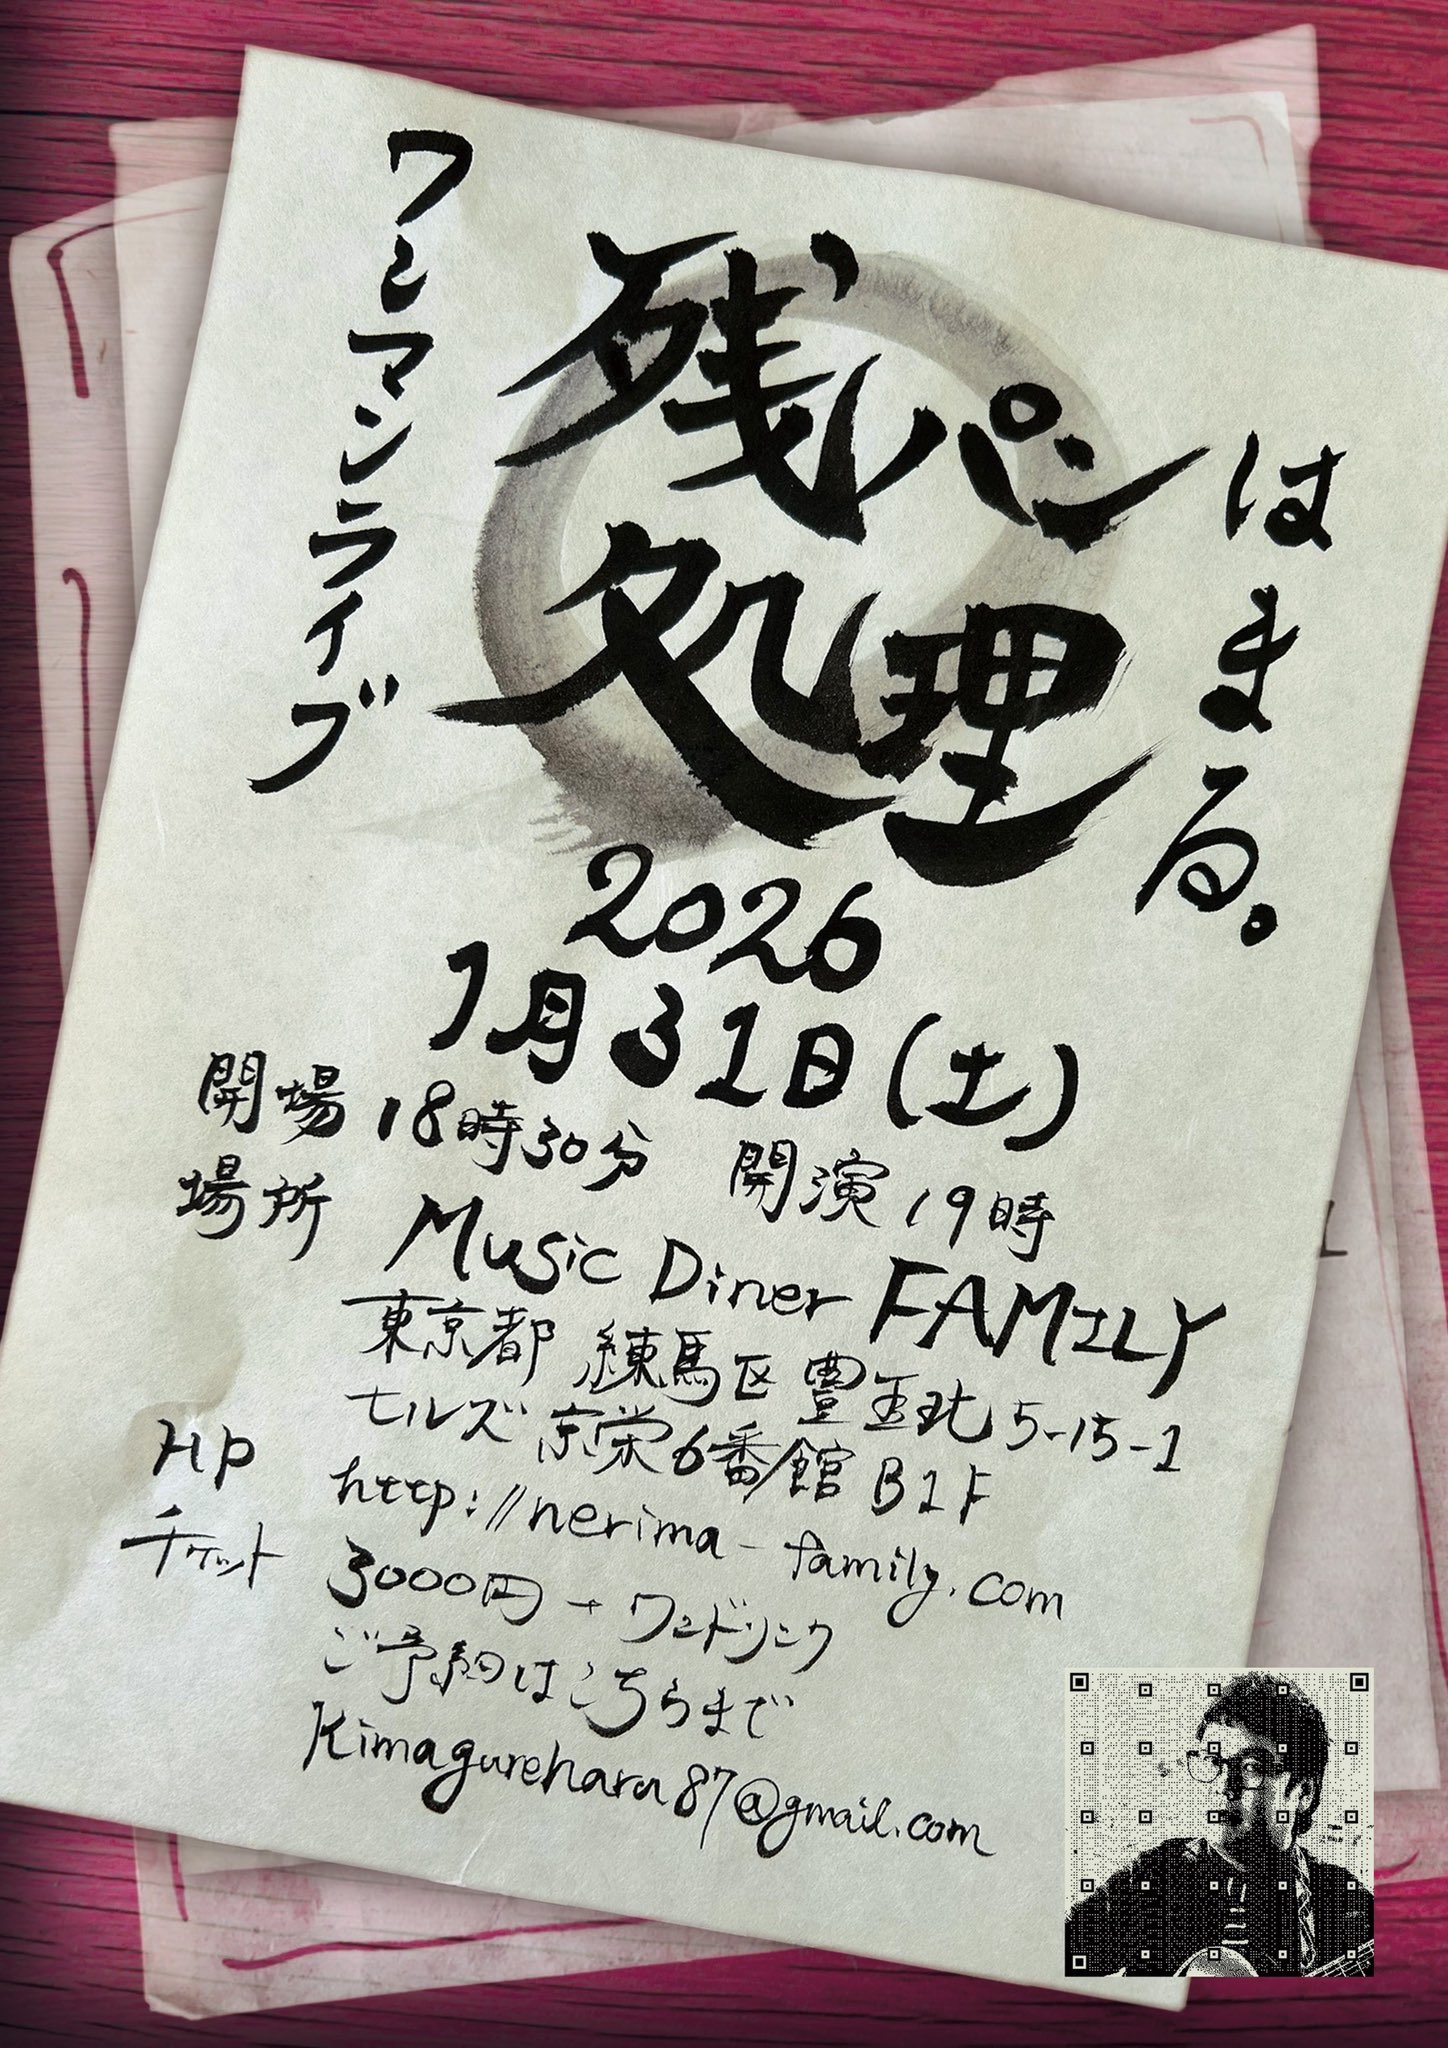 はまる。
残パン
処理
ワンマンライブ
2026
1月31日(土)
開場 18時30分 開演 19時
場所 Music Diner FAMILY
東京都 練馬区 豊玉北 5-15-1
ヒルズ 京栄6番館 B1F
HP http://nerima-family.com
チケット 3000円+ワンドリンク
ご予約はこちらまで
kimagureharu87@gmail.com